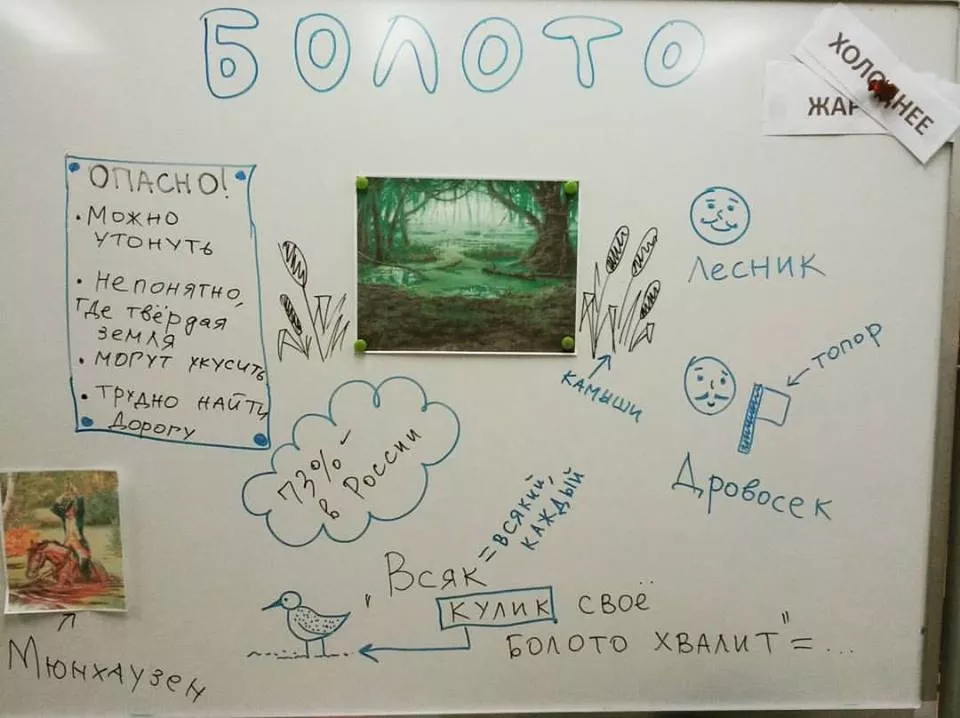 БОЛОТО
ХОЛОДНЕЕ
ЖАР
ОПАСНО!
• МОЖНО
УТОНУТЬ
• НЕПОНЯТНО,
ГДЕ ТВЁРДАЯ
ЗЕМЛЯ
• МОГУТ УКУСИТЬ
• ТРУДНО НАЙТИ
ДОРОГУ
КАМЫШИ
ЛЕСНИК
ТОПОР
ДРОВОСЕК
73% -
в России
"Всяк
= ВСЯКИЙ,
КАЖДЫЙ
КУЛИК СВОЁ
БОЛОТО ХВАЛИТ" = ...
МЮНХАУЗЕН